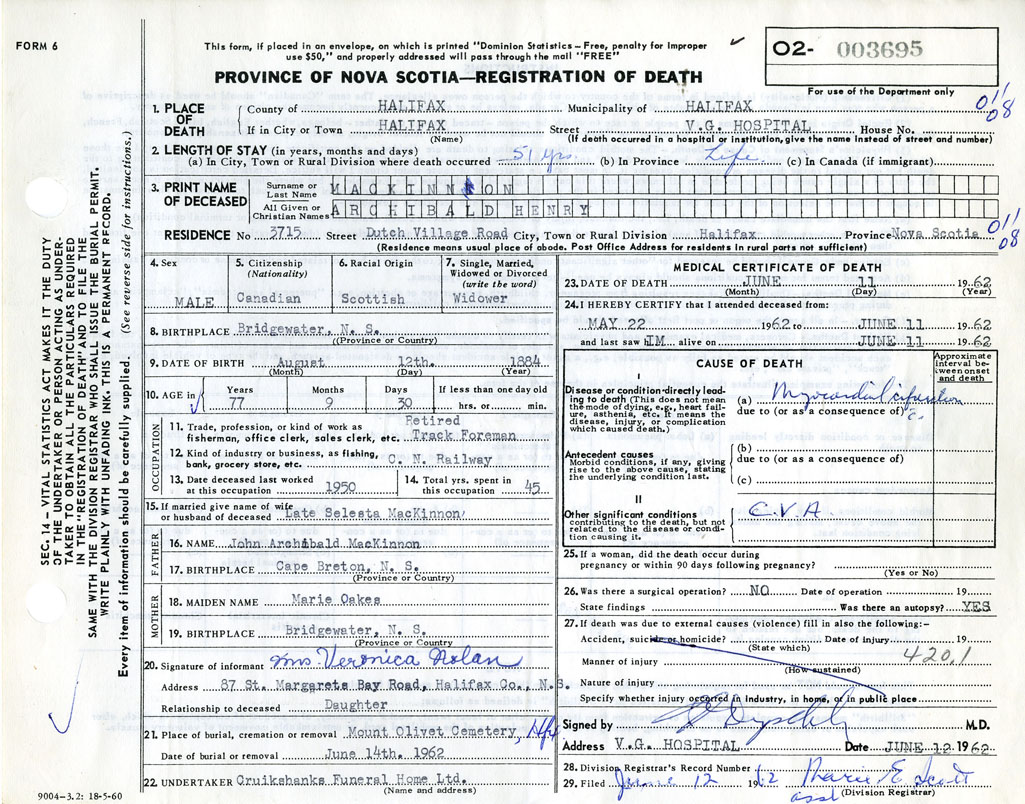 FORM 6
This form, if placed in an envelope, on which is printed "Dominion Statistics – Free, penalty for improper
use $50," and properly addressed will pass through the mail "FREE"
O2- 003695
PROVINCE OF NOVA SCOTIA—REGISTRATION OF DEATH
For use of the Department only
1. PLACE OF DEATH
County of HALIFAX Municipality of HALIFAX
If in City or Town HALIFAX Street V.G. HOSPITAL House No.
(Name) (If death occurred in a hospital or institution, give the name instead of street and number)
2. LENGTH OF STAY (in years, months and days)
(a) In City, Town or Rural Division where death occurred 51 yrs. (b) In Province Life (c) In Canada (if immigrant)
3. PRINT NAME OF DECEASED
Surname or Last Name MACKINNON
All Given or Christian Names ARCHIBALD HENRY
RESIDENCE No 3715 Street Dutch Village Road City, Town or Rural Division Halifax Province Nova Scotia
(Residence means usual place of abode. Post Office Address for residents in rural parts not sufficient)
4. Sex MALE
5. Citizenship (Nationality) Canadian
6. Racial Origin Scottish
7. Single, Married, Widowed or Divorced (write the word) Widower
8. BIRTHPLACE Bridgewater, N. S.
(Province or Country)
9. DATE OF BIRTH August 12th. 1884
(Month) (Day) (Year)
10. AGE in Years 77 Months 9 Days 30 If less than one day old hrs. or min.
OCCUPATION
11. Trade, profession, or kind of work as fisherman, office clerk, sales clerk, etc. Retired Track Foreman
12. Kind of industry or business, as fishing, bank, grocery store, etc. C. N. Railway
13. Date deceased last worked at this occupation 1950
14. Total yrs. spent in this occupation 45
15. If married give name of wife or husband of deceased Late Selesta MacKinnon
FATHER
16. NAME John Archibald MacKinnon
17. BIRTHPLACE Cape Breton, N. S.
(Province or Country)
MOTHER
18. MAIDEN NAME Marie Oakes
19. BIRTHPLACE Bridgewater, N. S.
(Province or Country)
20. Signature of informant Mrs. Veronica Nolan
Address 87 St. Margarets Bay Road, Halifax Co., N.S.
Relationship to deceased Daughter
21. Place of burial, cremation or removal Mount Olivet Cemetery, Hfx
Date of burial or removal June 14th. 1962
22. UNDERTAKER Cruikshanks Funeral Home Ltd.
(Name and address)
MEDICAL CERTIFICATE OF DEATH
23. DATE OF DEATH JUNE 11 1962
(Month) (Day) (Year)
24. I HEREBY CERTIFY that I attended deceased from:
MAY 22 1962 to JUNE 11 1962
and last saw HIM alive on JUNE 11 1962
CAUSE OF DEATH
Approximate interval between onset and death
I
Disease or condition directly leading to death (This does not mean the mode of dying, e.g., heart failure, asthenia, etc. It means the disease, injury, or complication which caused death.)
(a) Myocardial infarction
due to (or as a consequence of)
Antecedent causes
Morbid conditions, if any, giving rise to the above cause, stating the underlying condition last.
(b)
due to (or as a consequence of)
(c)
II
Other significant conditions
contributing to the death, but not related to the disease or condition causing it.
C.V.A.
25. If a woman, did the death occur during
pregnancy or within 90 days following pregnancy?
(Yes or No)
26. Was there a surgical operation? NO Date of operation 19
State findings Was there an autopsy? YES
27. If death was due to external causes (violence) fill in also the following:-
Accident, suicide or homicide? Date of injury 19
(State which)
420.1
Manner of injury
(How sustained)
Nature of injury
Specify whether injury occurred in industry, in home, or in public place
Signed by M.D.
Address V.G. HOSPITAL Date JUNE 12 1962
28. Division Registrar's Record Number
29. Filed June 12 1962 Marie E. Scott
asst (Division Registrar)
011
08
011
08
SEC. 14 – VITAL STATISTICS ACT MAKES IT THE DUTY
OF THE UNDERTAKER OR PERSON ACTING AS UNDER-
TAKER TO OBTAIN ALL THE PARTICULARS REQUIRED
IN THE "REGISTRATION OF DEATH" AND TO FILE THE
SAME WITH THE DIVISION REGISTRAR WHO SHALL ISSUE THE BURIAL PERMIT.
WRITE PLAINLY WITH UNFADING INK. THIS IS A PERMANENT RECORD.
Every item of information should be carefully supplied. (See reverse side for instructions.)
9004-3.2: 18-5-60